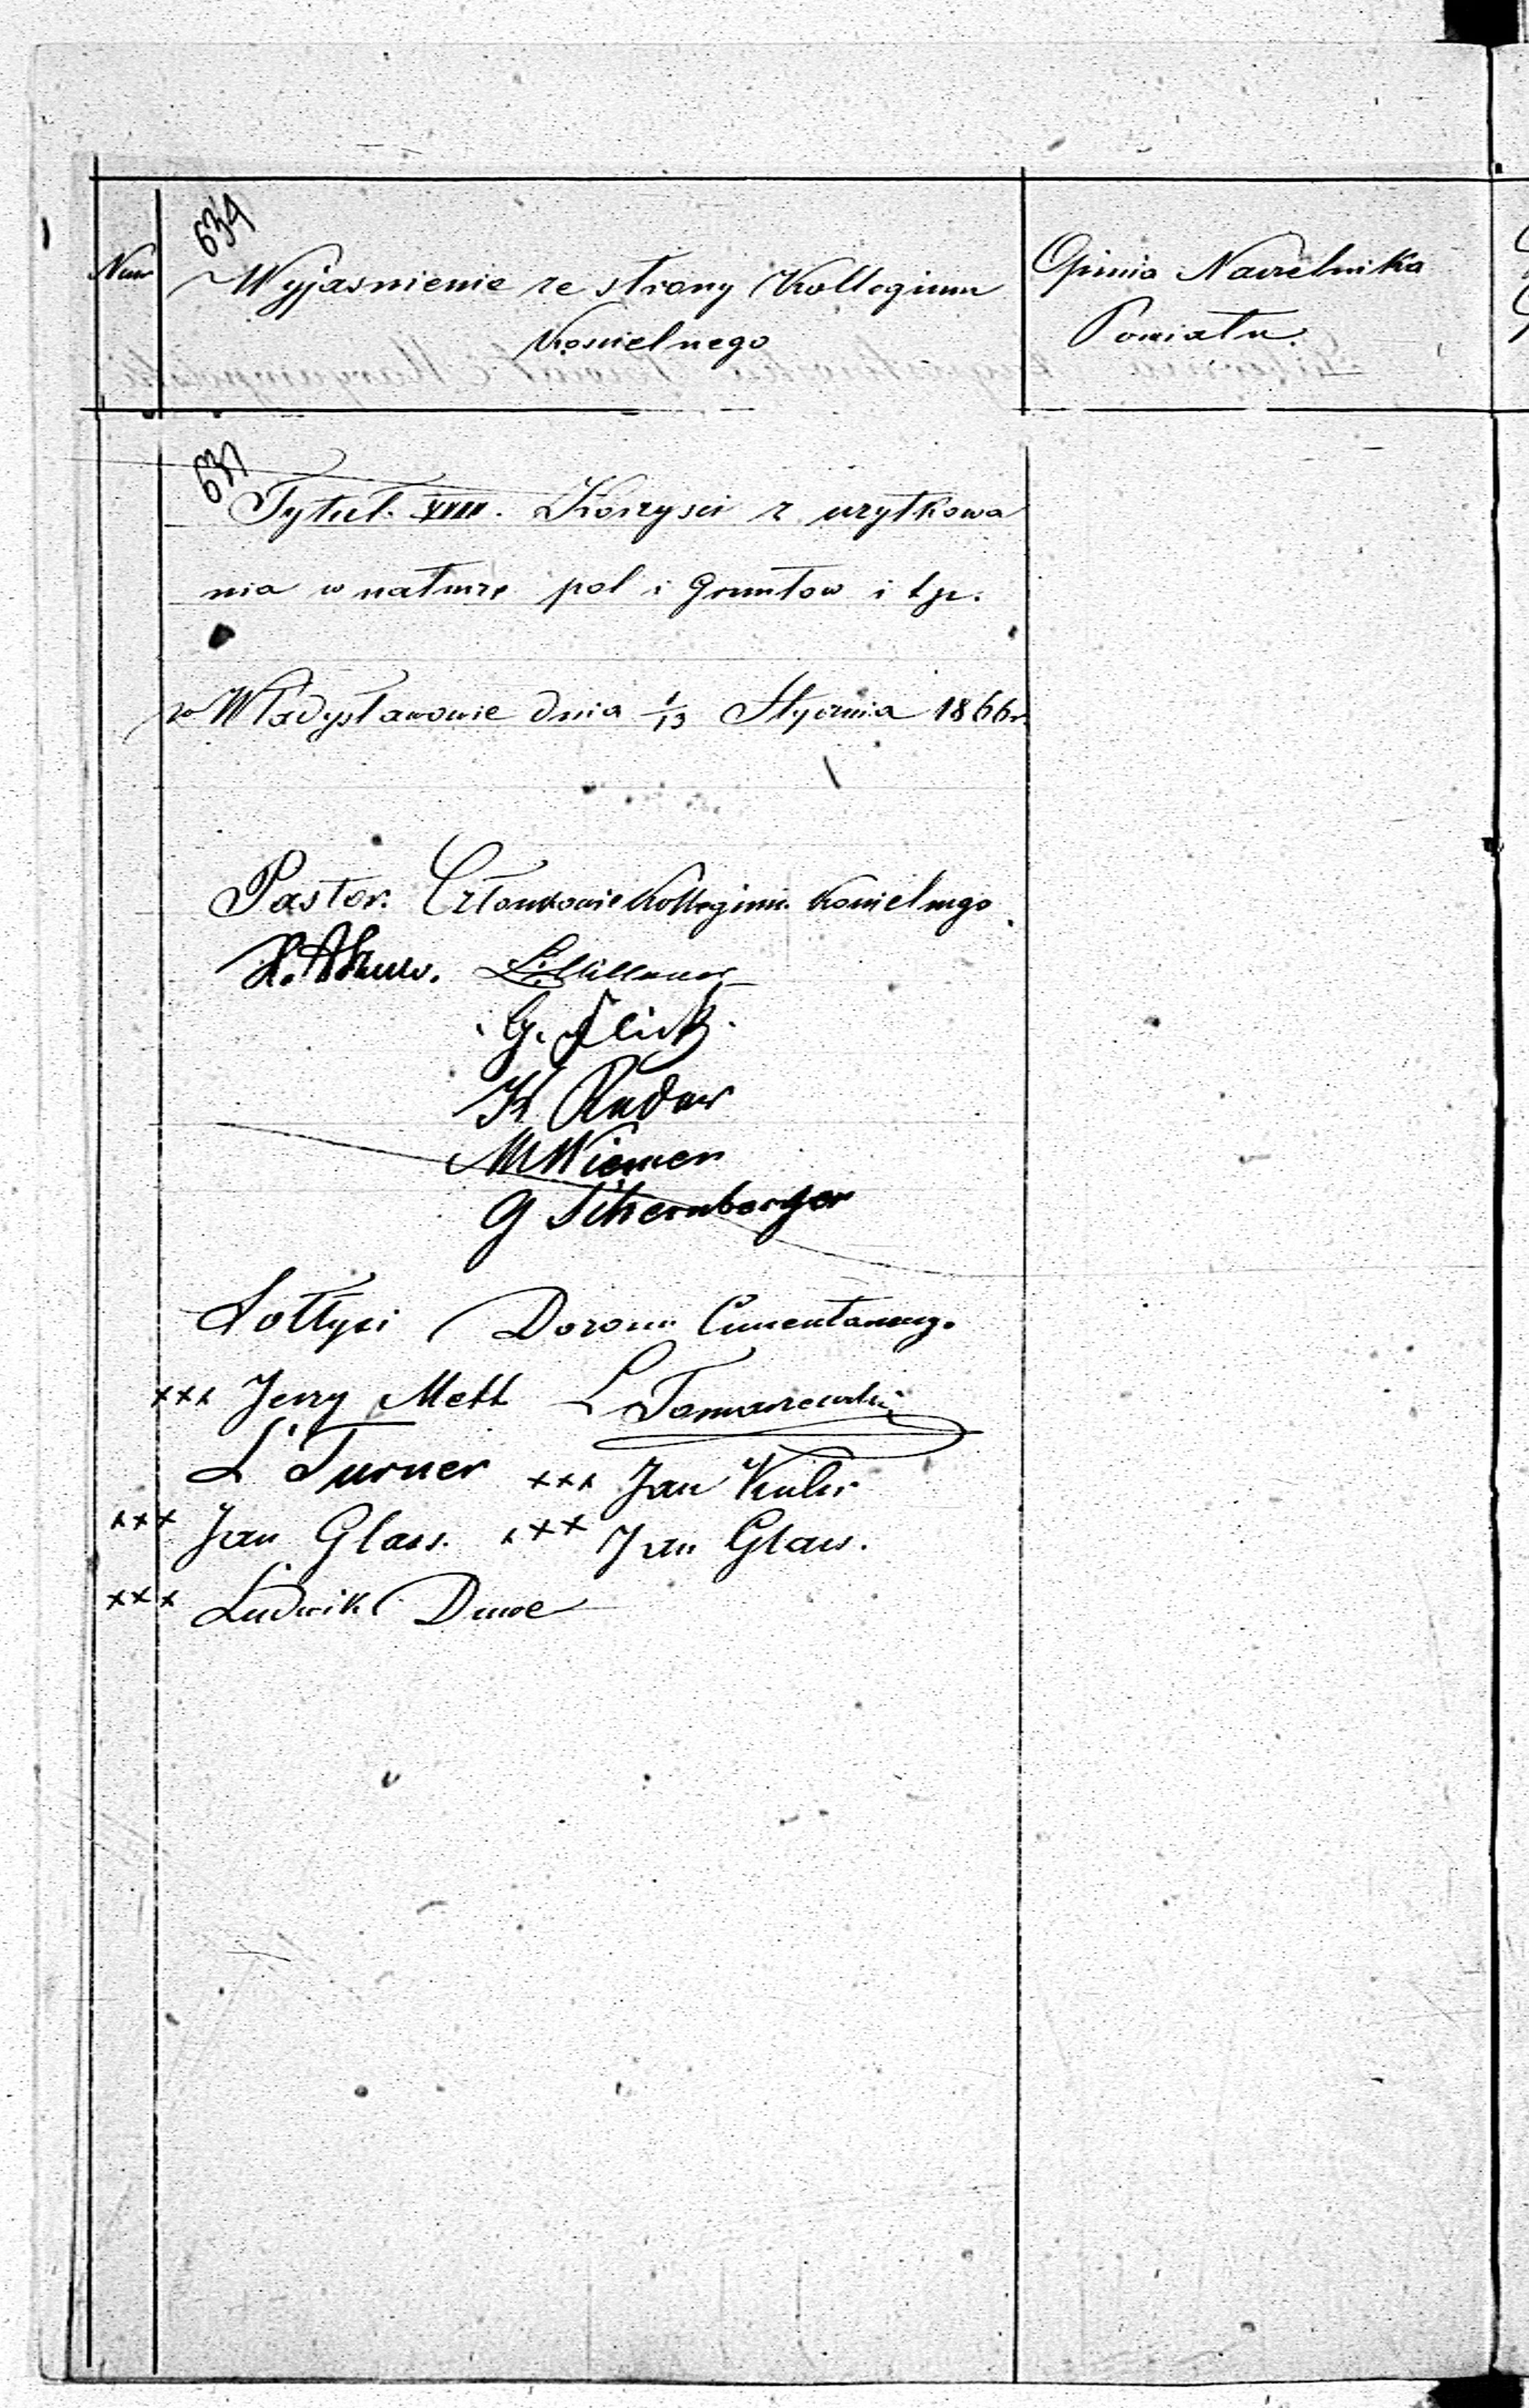 634
Num
Wyjasnienie ze strony Kollegium
Koscielnego
Opinia Naczelnika
Powiatu.
Tytuł. XVIII. Korzysci z uzytkowa
nia w naturze pol i Gruntow i t.p.
w Władysławowie dnia 1/13 Stycznia 1866r.
Pastor. Członkowie Kollegium Koscielnego
G. Flick.
K Rudow
M Wiemer
G Schernberger
Sołtysi Dozoru Cmentarnego
xxx Jerzy Mett L Tomaszewski
L Turner xxx Jan Kuhr
xxx Jan Glass. xxx Jan Glass.
xxx Ludwik Duwe